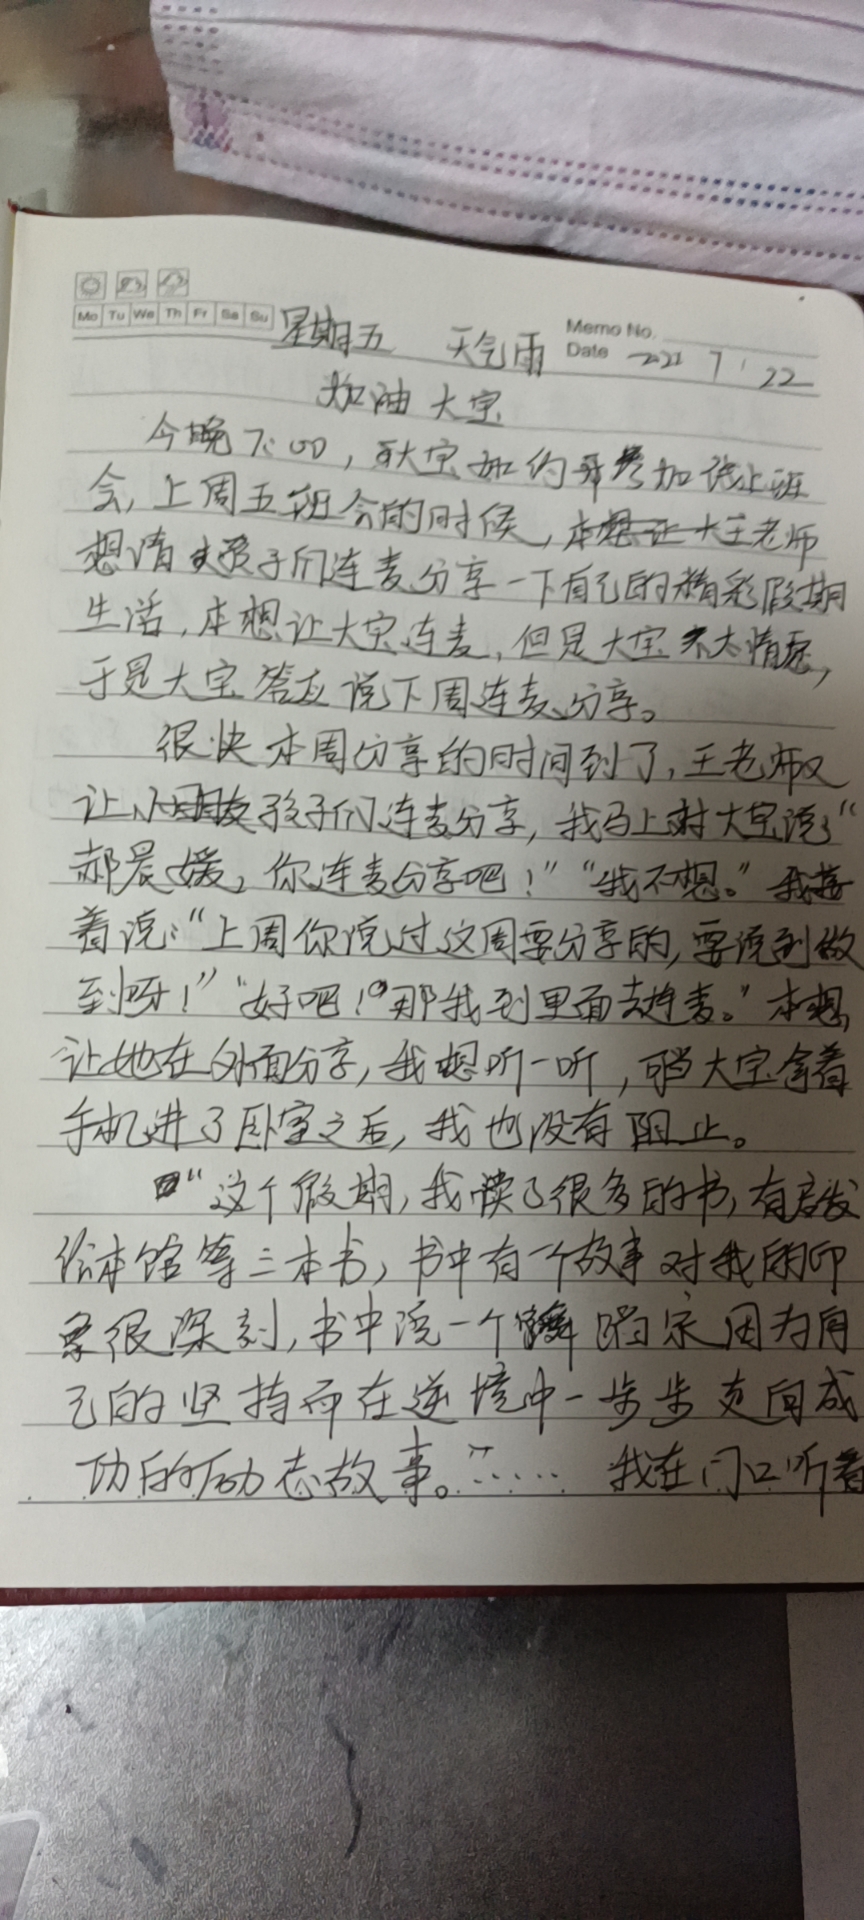 Mo Tu We Th Fr Sa Su 星期五 天气雨 Memo No.
Date 2022 7 22
加油大宝
今晚7:00，和大宝如约参加线上班
会，上周五班会的时候，王老师
想请孩子们连麦分享一下自己的精彩假期
生活，本想让大宝连麦，但是大宝不太情愿，
于是大宝答应说下周连麦分享。
很快本周分享的时间到了，王老师又
让孩子们连麦分享，我马上对大宝说：“
郝晨媛，你连麦分享吧！”“我不想。”我接
着说：“上周你说过这周要分享的，要说到做
到呀！”“好吧！那我到里面去连麦。”本想
让她在外面分享，我想听一听，可当大宝拿着
手机进了卧室之后，我也没有阻止。
“这个假期，我读了很多的书，有启发
绘本馆等三本书，书中有一个故事对我的印
象很深刻，书中说一个舞蹈家因为自
己的坚持而在逆境中一步步走向成
功的励志故事。”…… 我在门口听着